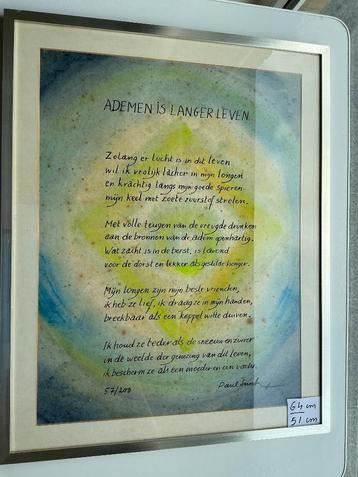 ADEMEN IS LANGER LEVEN
Zolang er lucht is in dit leven
wil ik vrolijk lachen in mijn longen
en krachtig langs mijn goede spieren
mijn keel met zoete zuurstof strelen.
Met volle teugen van de vreugde drinken
aan de bronnen van de adem openhartig.
Wat zacht is in de borst, is lavend
voor de dorst en lekker als gestilde honger.
Mijn longen zijn mijn beste vrienden,
ik heb ze lief, ik draag ze in mijn handen,
breekbaar als een koppel witte duiven.
Ik houd ze teder als de sneeuw en zuiver
in de weelde der genezing van dit leven,
ik bescherm ze als een moeder en een vader.
57/200
Paul
64 cm
51 cm